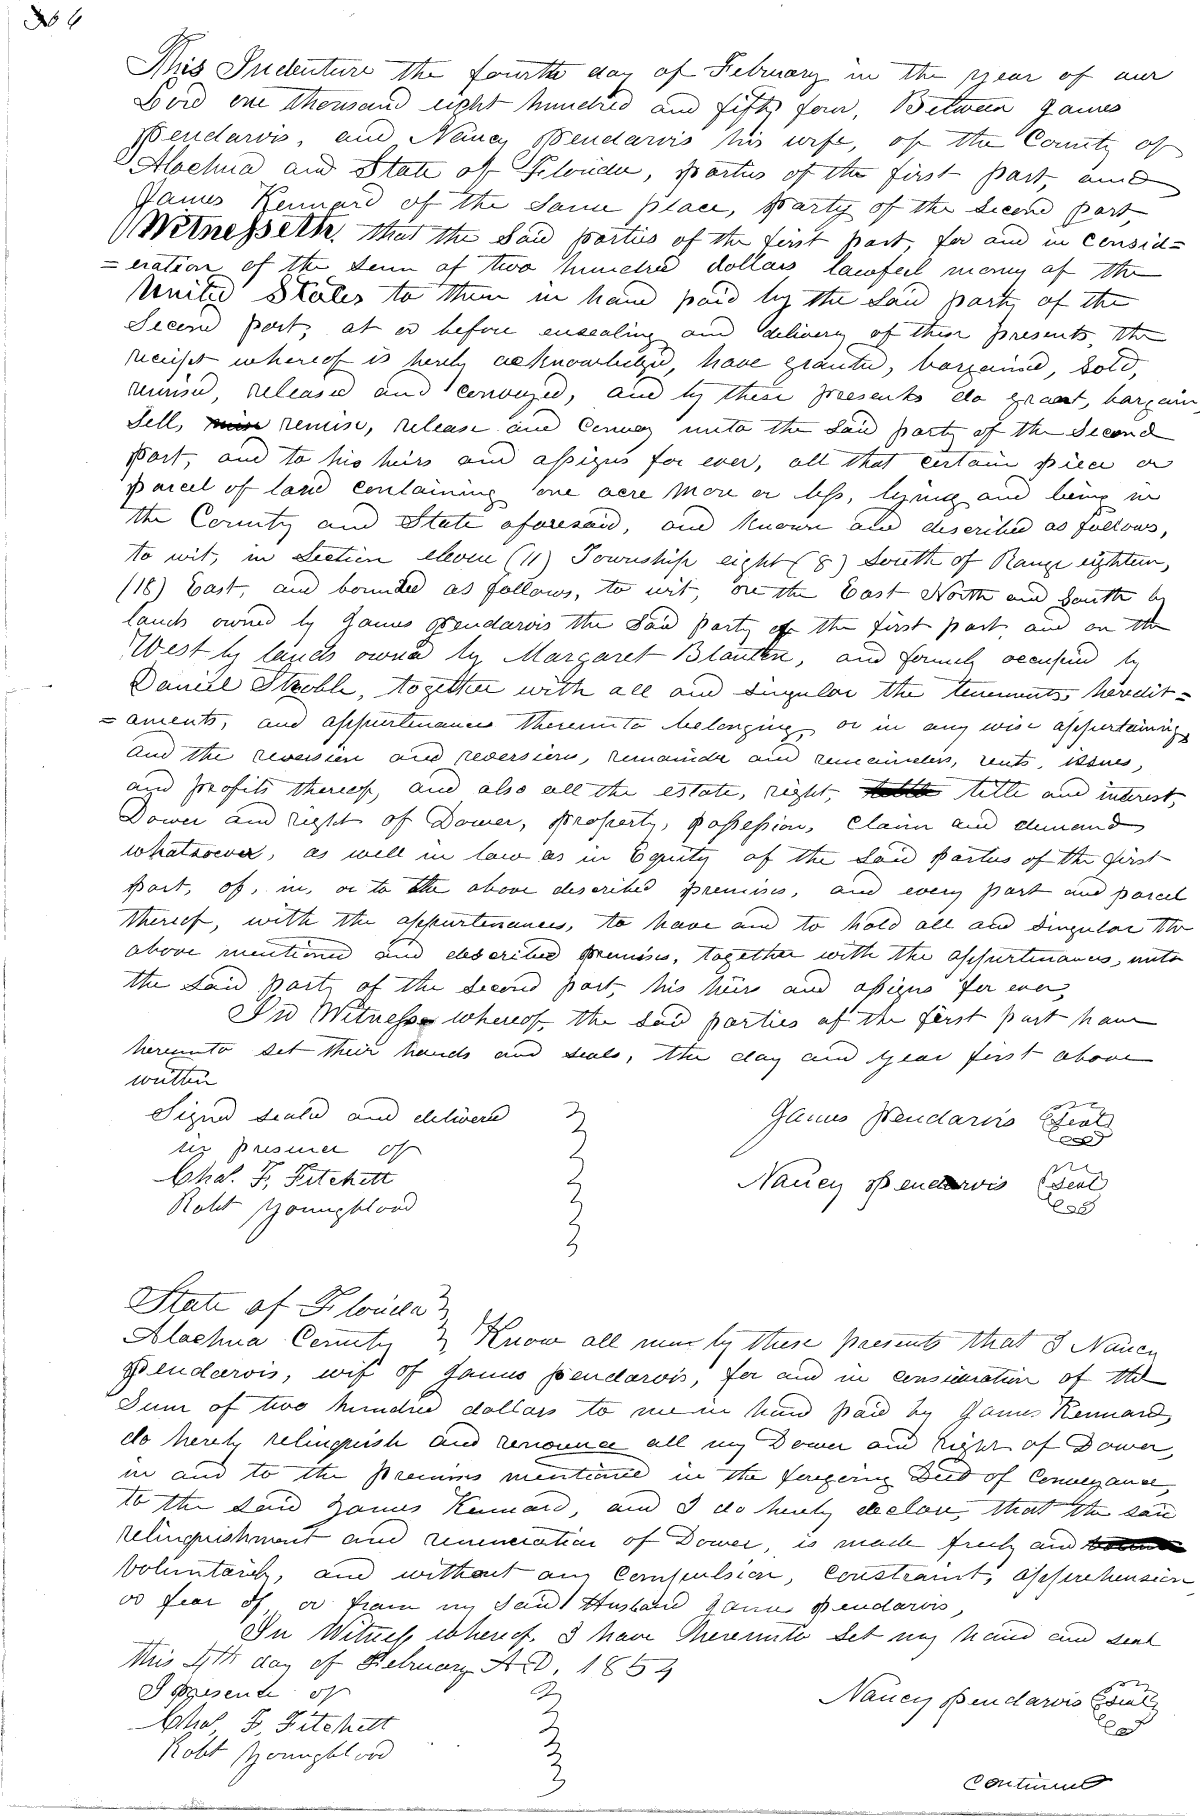 This Indenture the fourth day of February in the year of our
Lord one thousand eight hundred and fifty four, Between James
Pendarvis, and Nancy Pendarvis his wife, of the County of
Alachua and State of Florida, parties of the first part, and
James Kennard of the same place, party of the second part,
Witnesseth. that the said parties of the first part, for and in consid=
=eration of the sum of two hundred dollars lawfull money of the
United States to them in hand paid by the said party of the
Second part, at or before ensealing and delivery of these presents, the
receipt whereof is hereby acknowledged, have granted, bargained, sold,
remised, released and conveyed, and by these presents do grant, bargain,
sell, remise, release and convey unto the said party of the second
part, and to his heirs and assigns for ever, all that certain piece or
parcel of land containing one acre more or less, lying and being in
the County and State aforesaid, and known and described as follows,
to wit, in Section eleven (11) Township eight (8) South of Range eighteen,
(18) East, and bounded as follows, to wit, on the East North and South by
lands owned by James Pendarvis the said party of the first part and on the
West by lands owned by Margaret Blanton, and formely occupied by
Daniel Stroble, together with all and singular the tenements heredit=
=aments, and appurtenances thereunto belonging, or in any wise appertaining,
and the reversion and reversions, remainder and remainders, rents, issues,
and profits thereof, and also all the estate, right, title and interest,
Dower and right of Dower, property, possession, claim and demand
whatsoever, as well in law as in Equity of the said parties of the first
part, of, in, or to the above described premises, and every part and parcel
thereof, with the appurtenances, to have and to hold all and singular the
above mentioned and described premises, together with the appurtenances, unto
the said party of the second part, his heirs and assigns for ever,
In Witness whereof, the said parties of the first part have
hereunto set their hands and seals, the day and year first above
written
Signed sealed and delivered
in presence of
Chas. F. Fitchett
Robt Youngblood
James Pendarvis Seal
Nancy Pendarvis Seal
State of Florida
Alachua County Know all men by these presents that I Nancy
Pendarvis, wife of James Pendarvis, for and in consideration of the
Sum of two hundred dollars to me in hand paid by James Kennard,
do hereby relinquish and renounce all my Dower and right of Dower,
in and to the premises mentioned in the foregoing Deed of Conveyance,
to the said James Kennard, and I do hereby declare, that the said
relinquishment and renunciation of Dower, is made freely and
voluntarily, and without any compulsion, constraint, apprehension,
or fear of, or from my said Husband James Pendarvis,
In Witness whereof, I have hereunto set my hand and seal
this 4th day of February A.D. 1854
I presence of
Chas. F. Fitchett
Robt Youngblood
Nancy Pendarvis Seal
continued